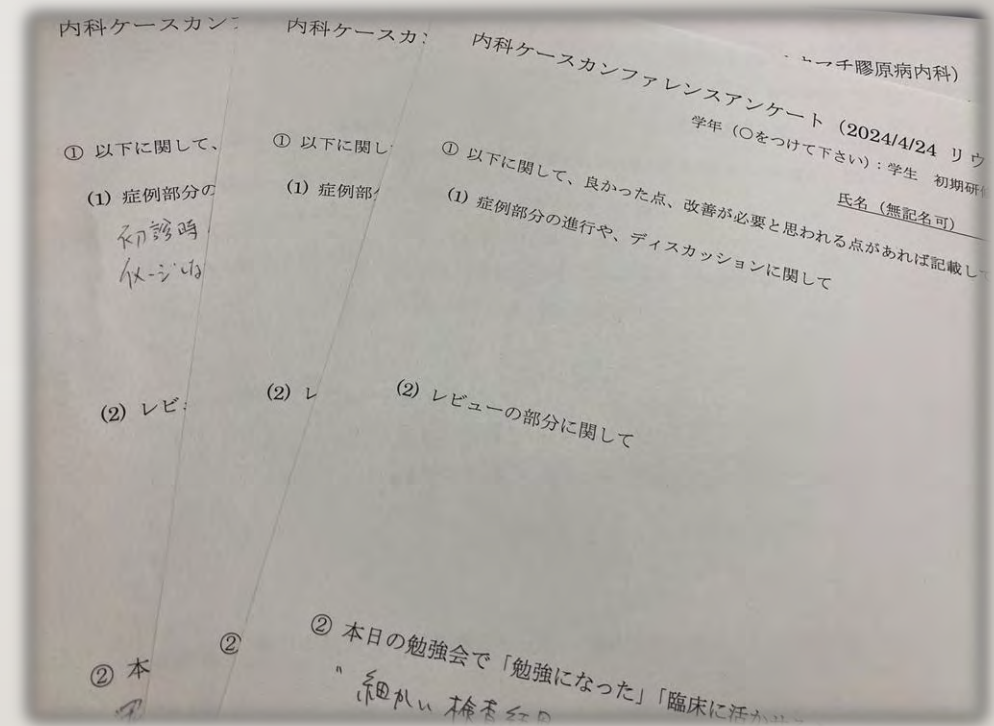 内科ケースカン
① 以下に関して、
(1) 症例部分の
初診時
イメージしな
(2) レビ
② 本
内科ケースカ
① 以下に関し
(1) 症例部
(2) レ
②
マチ膠原病内科)
内科ケースカンファレンスアンケート (2024/4/24 リウ
学年 (○をつけて下さい) : 学生 初期研
氏名 (無記名可)
① 以下に関して、良かった点、改善が必要と思われる点があれば記載し
(1) 症例部分の進行や、ディスカッションに関して
(2) レビューの部分に関して
② 本日の勉強会で「勉強になった」「臨床に活か
細かい 検査結果